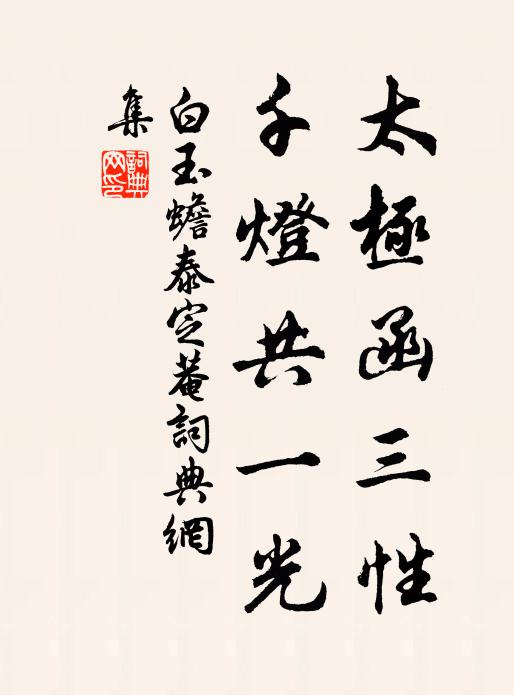 太極函三性
千燈共一光
白玉蟾泰定菴詞典網
集
詞典
网印